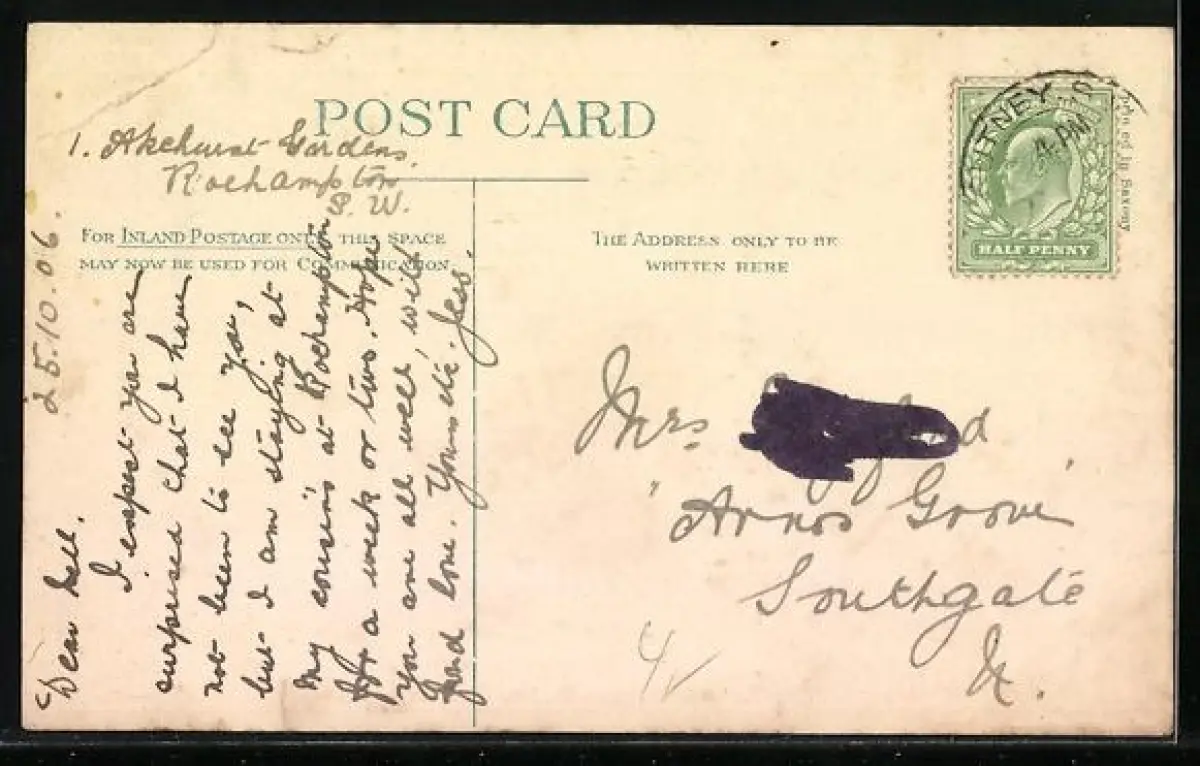 POST CARD
1. Akehurst Gardens,
Roehampton
S. W.
25.10.06.
FOR INLAND POSTAGE ONLY THIS SPACE
MAY NOW BE USED FOR COMMUNICATION.
THE ADDRESS ONLY TO BE
WRITTEN HERE
Dear Nell.
I expect you are
surprised that I have
not been to see you,
but I am staying at
my cousins at Roehampton
for a week or two. Hope
you are all well, with
fond love. Yours etc. Jess.
PUTNEY. S
4. PM
HALF PENNY
Printed in Saxony
Mrs
"Arnos Grove"
Southgate
N.